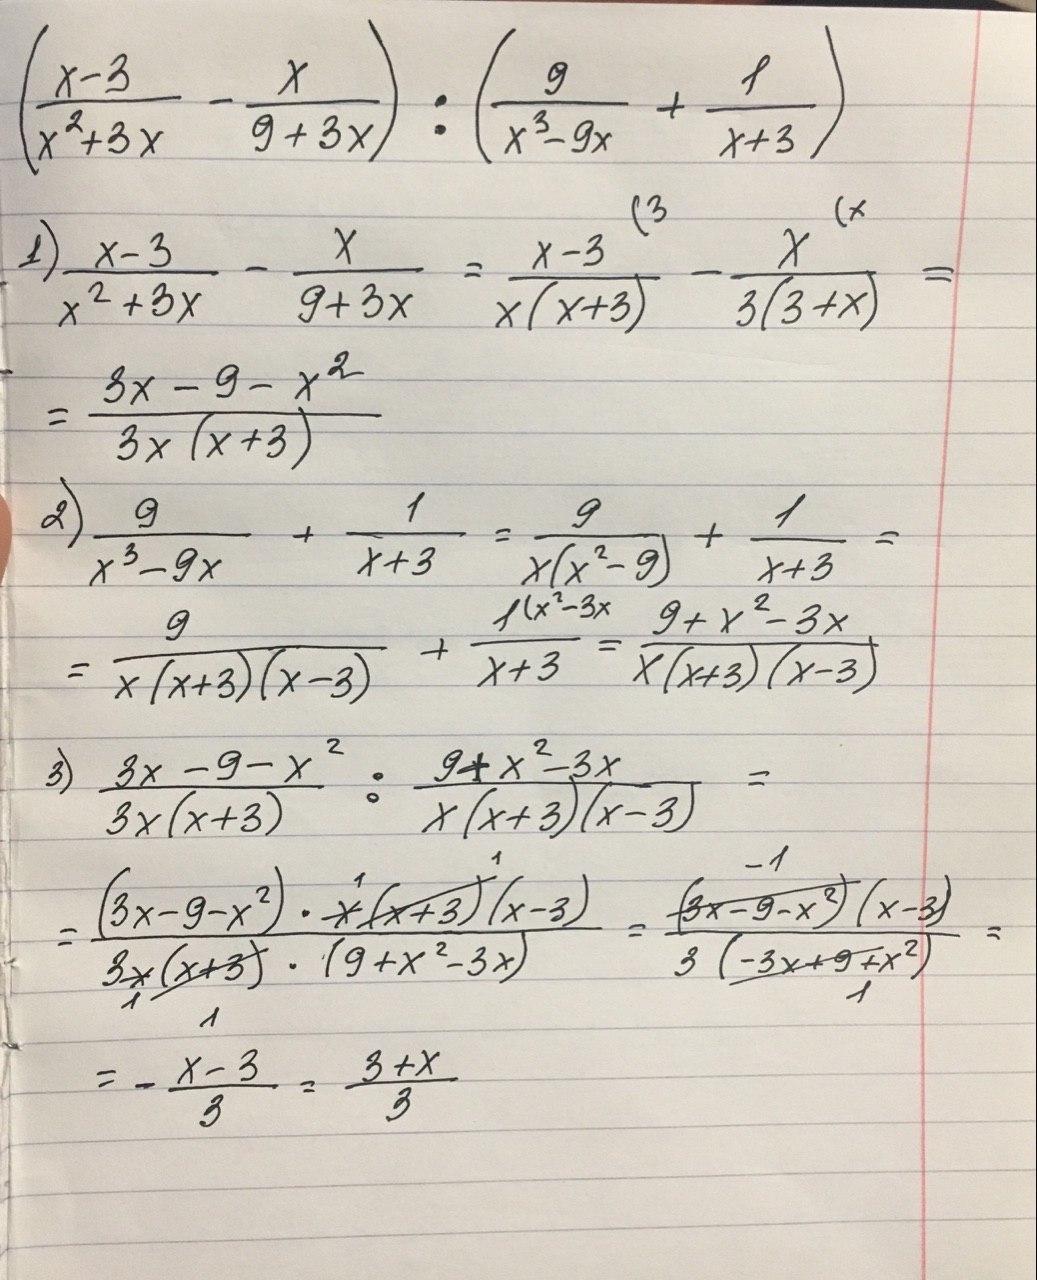 (x-3/x²+3x - x/9+3x) : (9/x³-9x + 1/x+3)
1) x-3/x²+3x - x/9+3x = x-3 (3/x(x+3) - x (x/3(3+x) =
= 3x-9-x²/3x(x+3)
2) 9/x³-9x + 1/x+3 = 9/x(x²-9) + 1/x+3 =
= 9/x(x+3)(x-3) + 1(x²-3x/x+3 = 9+x²-3x/x(x+3)(x-3)
3) 3x-9-x²/3x(x+3) : 9+x²-3x/x(x+3)(x-3) =
= (3x-9-x²) · x 1 (x+3) 1 (x-3)/3x 1 (x+3) 1 · (9+x²-3x) = (3x-9-x²) -1 (x-3)/3(-3x+9+x²) 1 =
= - x-3/3 = 3+x/3